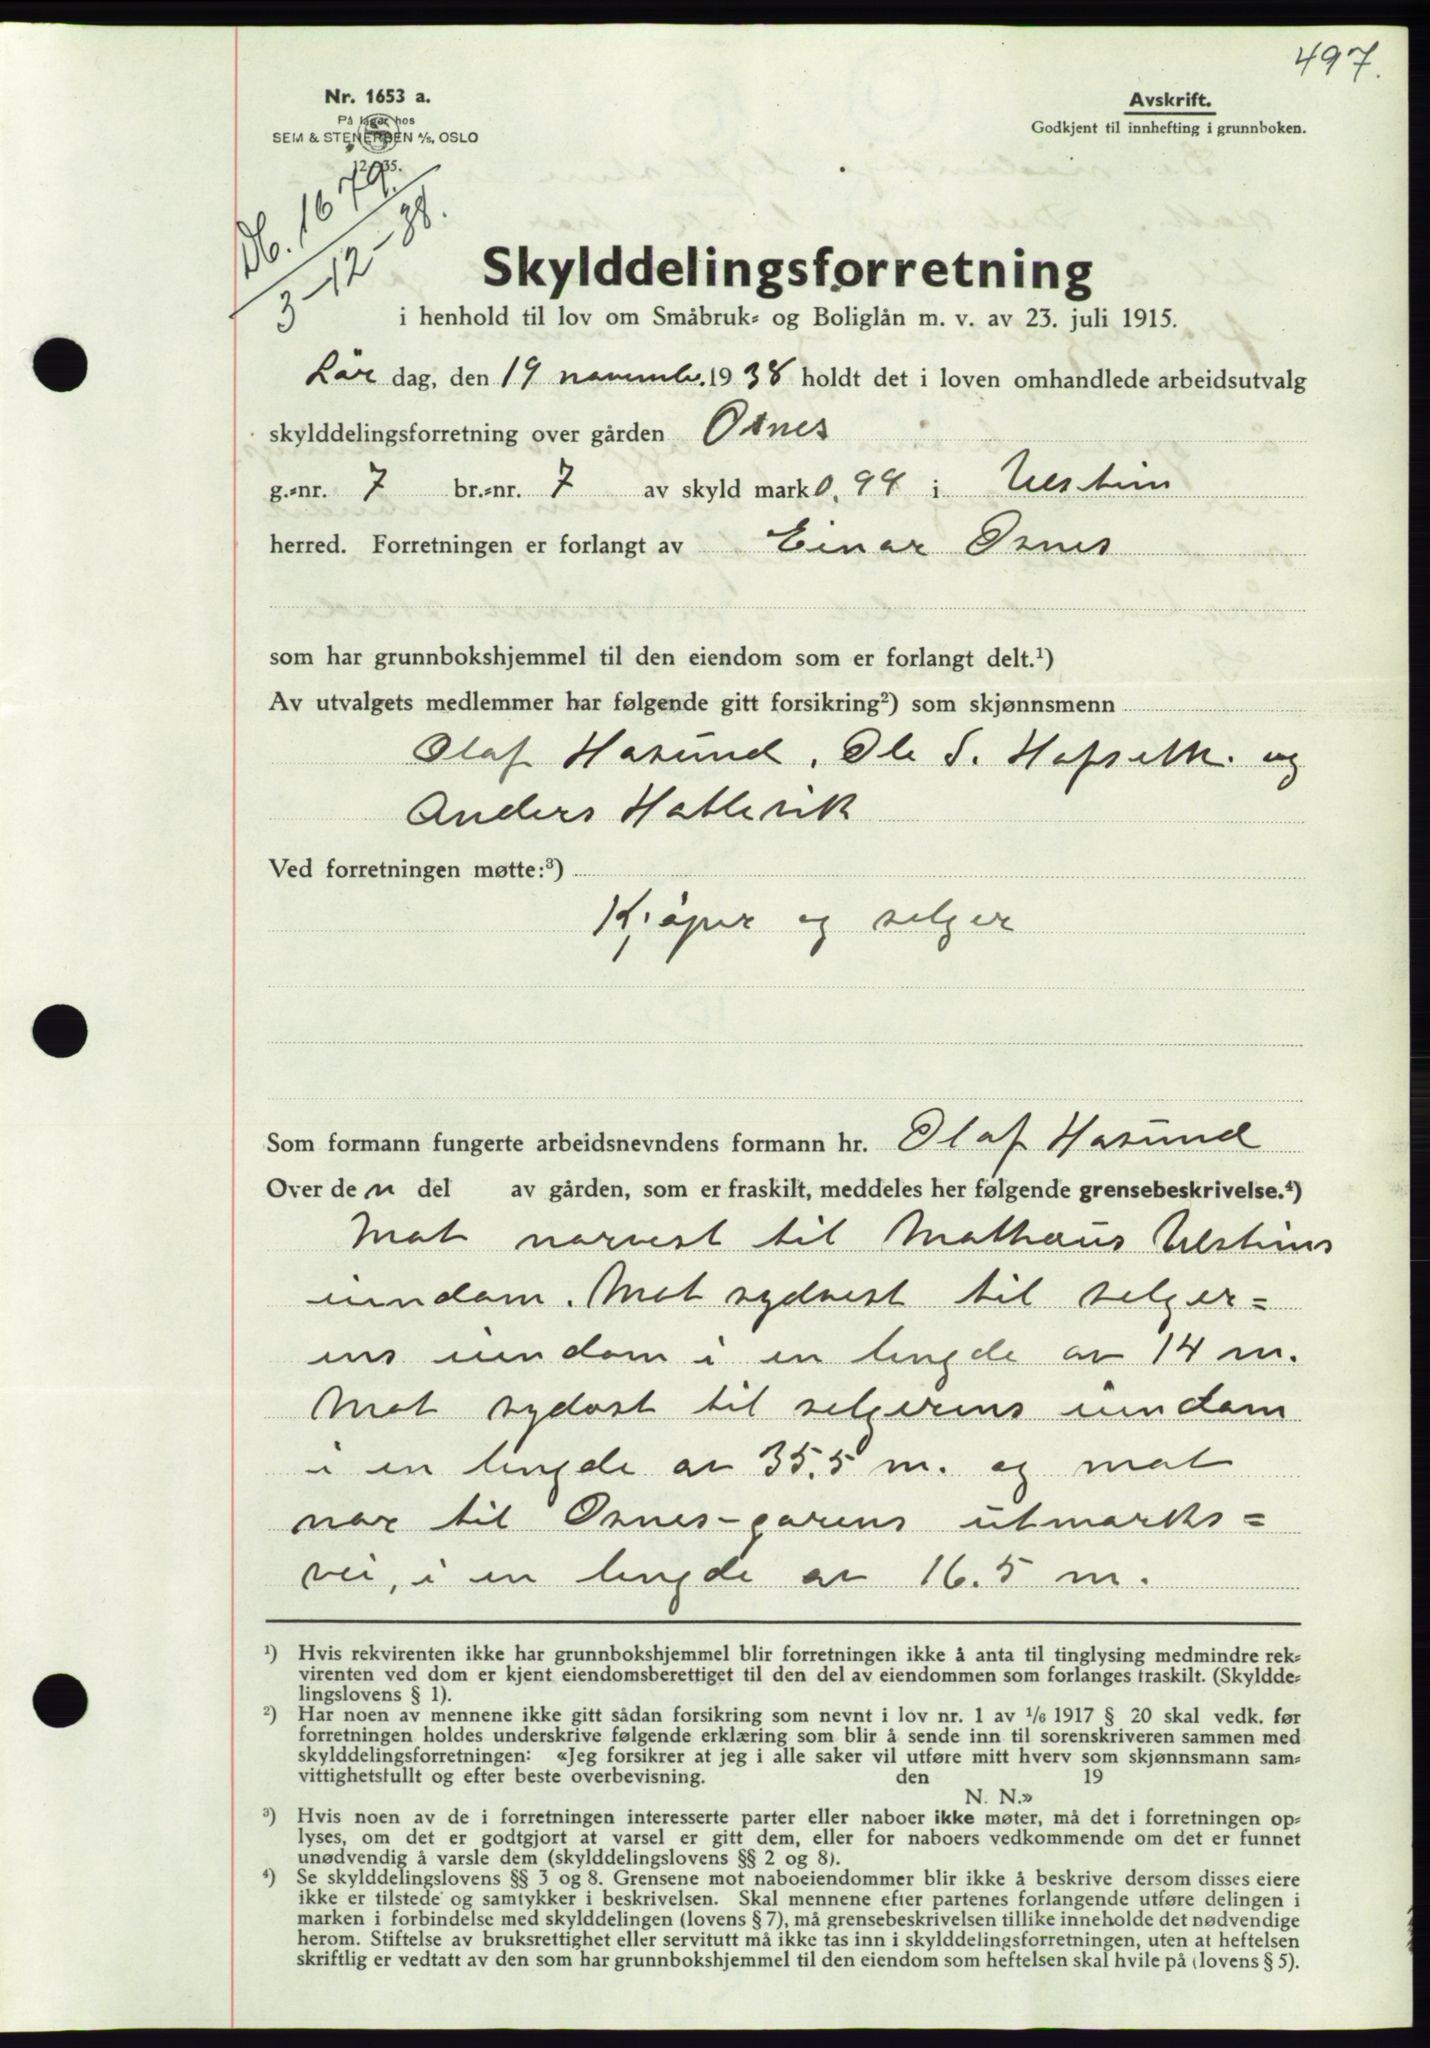 497.
Nr. 1653 a.
På lager hos
SEM & STENERSEN A/S, OSLO
12. 35.
Avskrift.
Godkjent til innhefting i grunnboken.
Db. 1679.
3-12-38.
Skylddelingsforretning
i henhold til lov om Småbruk- og Boliglån m. v. av 23. juli 1915.
Lör dag, den 19 novembr. 1938 holdt det i loven omhandlede arbeidsutvalg
skylddelingsforretning over gården Osnes
g.-nr. 7 br.-nr. 7 av skyld mark 0,99 i Ulstein
herred. Forretningen er forlangt av Einar Osnes
som har grunnbokshjemmel til den eiendom som er forlangt delt.¹)
Av utvalgets medlemmer har følgende gitt forsikring²) som skjønnsmenn
Olaf Hasund, Ole S. Hofseth. og
Anders Hatlevik
Ved forretningen møtte:³)
Kjöper og selger
Som formann fungerte arbeidsnevndens formann hr. Olaf Hasund
Over den del av gården, som er fraskilt, meddeles her følgende grensebeskrivelse.⁴)
Mot norvest til Mathæus Ulsteins
eiendom. Mot sydvest til selger=
ens eiendom i en lengde av 14 m.
Mot sydost til selgerens eiendom
i en lengde av 35,5 m. og mot
nor til Osnes-garens utmarks=
vei, i en lengde av 16.5 m.
¹) Hvis rekvirenten ikke har grunnbokshjemmel blir forretningen ikke å anta til tinglysing medmindre rek-
virenten ved dom er kjent eiendomsberettiget til den del av eiendommen som forlanges fraskilt. (Skyldde-
lingslovens § 1).
²) Har noen av mennene ikke gitt sådan forsikring som nevnt i lov nr. 1 av 1/6 1917 § 20 skal vedk. før
forretningen holdes underskrive følgende erklæring som blir å sende inn til sorenskriveren sammen med
skylddelingsforretningen: «Jeg forsikrer at jeg i alle saker vil utføre mitt hverv som skjønnsmann sam-
vittighetsfullt og efter beste overbevisning. den 19
N. N.»
³) Hvis noen av de i forretningen interesserte parter eller naboer ikke møter, må det i forretningen op-
lyses, om det er godtgjort at varsel er gitt dem, eller for naboers vedkommende om det er funnet
unødvendig å varsle dem (skylddelingslovens §§ 2 og 8).
⁴) Se skylddelingslovens §§ 3 og 8. Grensene mot naboeiendommer blir ikke å beskrive dersom disses eiere
ikke er tilstede og samtykker i beskrivelsen. Skal mennene efter partenes forlangende utføre delingen i
marken i forbindelse med skylddelingen (lovens § 7), må grensebeskrivelsen tillike inneholde det nødvendige
herom. Stiftelse av bruksrettighet eller servitutt må ikke tas inn i skylddelingsforretningen, uten at heftelsen
skriftlig er vedtatt av den som har grunnbokshjemmel til den eiendom som heftelsen skal hvile på (lovens § 5).